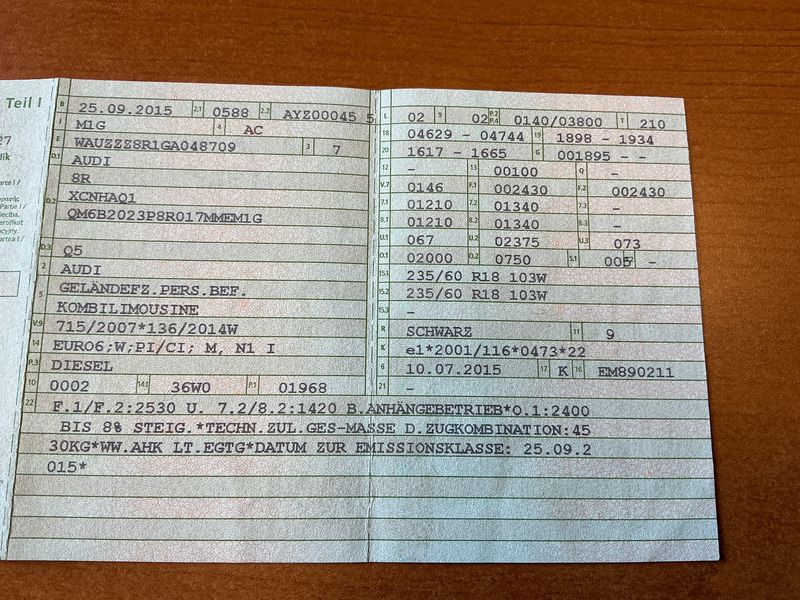 Teil I
B 25.09.2015 2.1 0588 2.2 AYZ00045 5
J M1G 4 AC
E WAUZZZ8R1GA048709 3 7
D.1 AUDI
8R
D.2 XCNHAQ1
QM6B2023P8R017MMEM1G
D.3 Q5
2 AUDI
5 GELÄNDEFZ.PERS.BEF.
KOMBILIMOUSINE
V.9 715/2007*136/2014W
14 EURO6;W;PI/CI; M, N1 I
P.3 DIESEL
10 0002 14.1 36W0 P.1 01968
L 02 9 02 P.2 P.4 0140/03800 T 210
18 04629 - 04744 19 1898 - 1934
20 1617 - 1665 G 001895 - -
12 - 13 00100 Q -
V.7 0146 F.1 002430 F.2 002430
7.1 01210 7.2 01340 7.3 -
8.1 01210 8.2 01340 8.3 -
U.1 067 U.2 02375 U.3 073
O.1 02000 O.2 0750 S.1 005 -
15.1 235/60 R18 103W
15.2 235/60 R18 103W
15.3 -
R SCHWARZ 11 9
K e1*2001/116*0473*22
6 10.07.2015 17 K 16 EM890211
21 -
22 F.1/F.2:2530 U. 7.2/8.2:1420 B.ANHÄNGEBETRIEB*O.1:2400
BIS 8% STEIG.*TECHN.ZUL.GES-MASSE D.ZUGKOMBINATION:45
30KG*WW.AHK LT.EGTG*DATUM ZUR EMISSIONSKLASSE: 25.09.2
015*